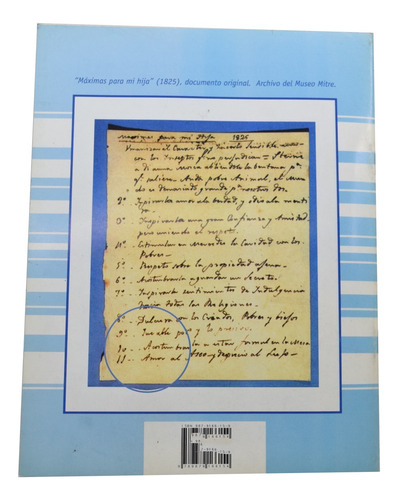 "Máximas para mi hija" (1825), documento original. Archivo del Museo Mitre.
Maximas para mi Hija 1825
Humanizar el Caracter y hacerlo sensible
con los Insectos q.e no perjudican = Sterne
a una Mosca abriendole la bentana p.a
q.e saliese: Anda pobre Animal, el Mun
do es demaciado grande p.a nosotros dos.
2ª Inspirarla amor a la berdad, y odio a la menti
ra.
3ª Inspirarla una gran Confianza y Amistad
pero uniendo el respeto.
4ª Estimular en Mercedes la Caridad con los
Pobres
5ª Respeto sobre la propiedad agena
6ª Acostumbrarla a guardar un Secreto.
7ª Inspirarla sentimientos de Indulgencia
hacia todas las Religiones.
8ª Dulzura con los Criados, Pobres y biejos
9ª Que able poco y lo preciso.
10 Acostumbrarla a estar formal en la Mesa
11 Amor al Aseo y desprecio al Lujo
ISBN